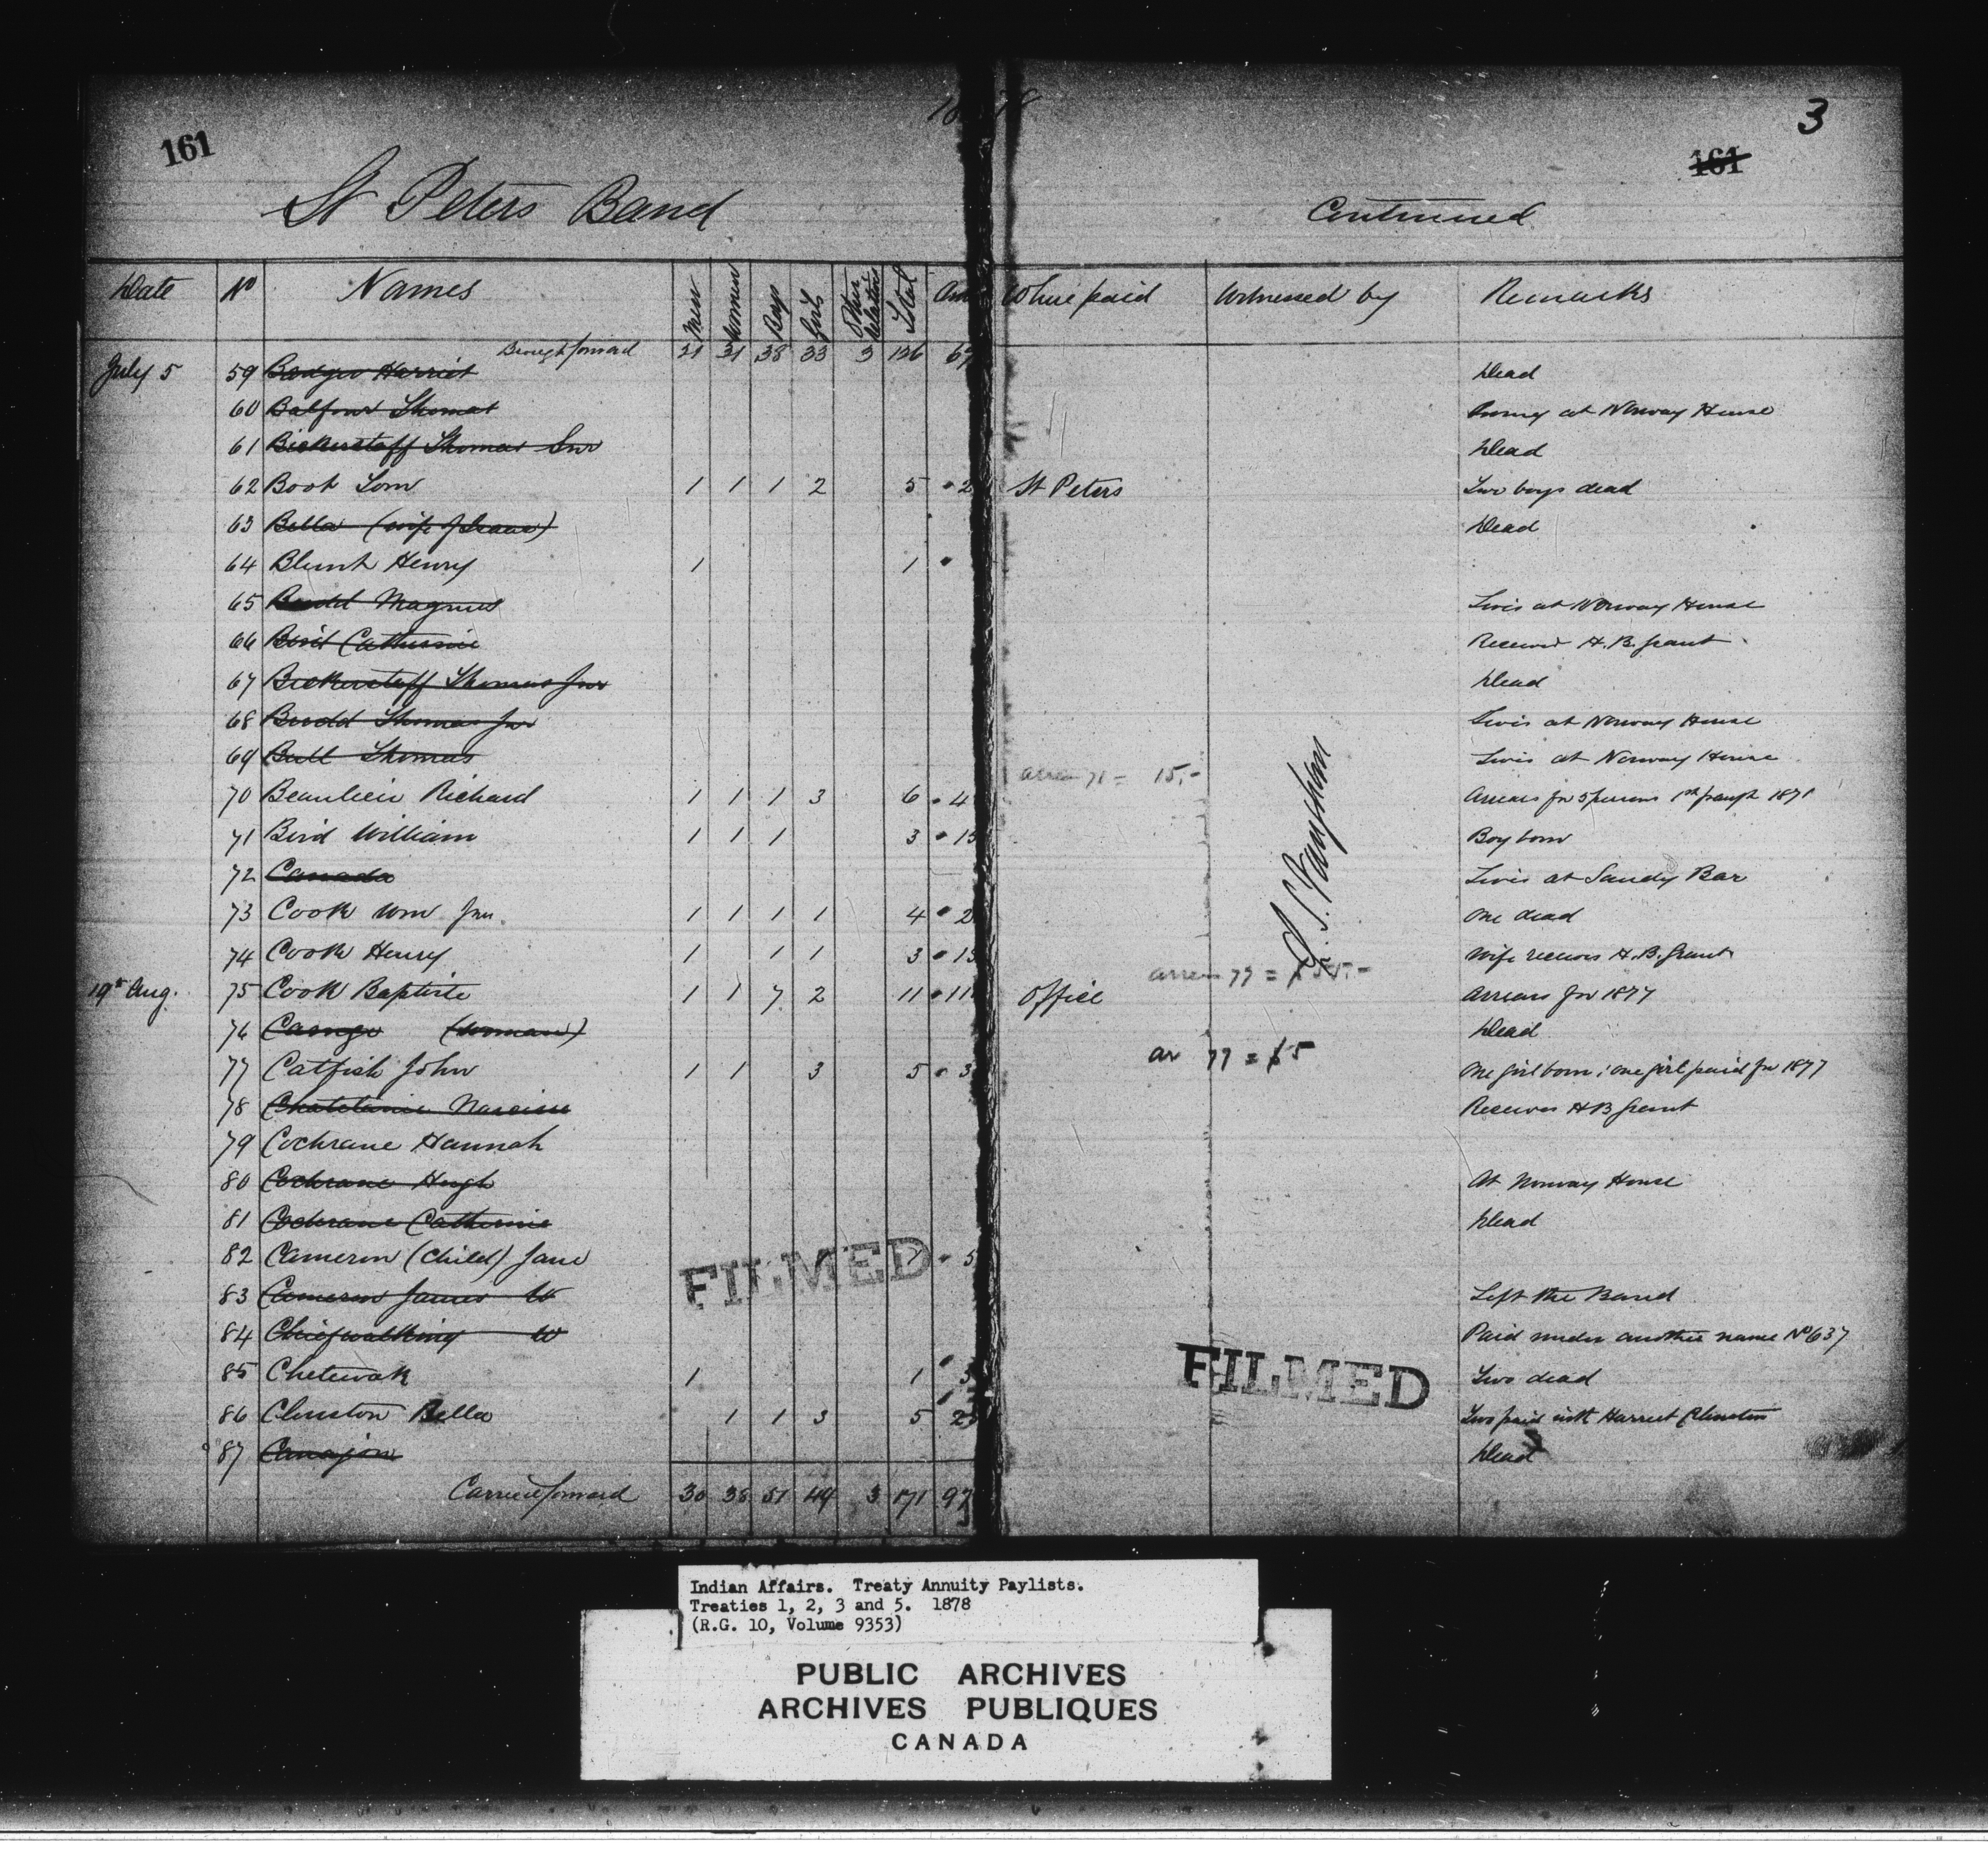 161
3
161
St Peters Band
Continued
Date No Names Men Women Boys Girls Other Relatives Total Where paid Witnessed by Remarks
Brought forward 21 31 38 33 3 126 67
July 5 59 Badger Harriet Dead
60 Balfour Thomas at Norway House
61 Bickerstaff Thomas Snr Dead
62 Boot Tom 1 1 1 2 5 2 St Peters Two boys dead
63 Bella (wife of Isaac) Dead
64 Blunt Henry 1 1
65 Budd Magnus Lives at Norway House
66 Bird Catherine Receives H.B. Grant
67 Bickerstaff Thomas Jnr Dead
68 Budd Thomas Jnr Lives at Norway House
69 Bull Thomas Lives at Norway House
15.-
70 Beaulieu Richard 1 1 1 3 6 4 Arrears for 5 persons
71 Bird William 1 1 1 3 15 Boy born
72 Canada Lives at Sandy Bar
73 Cook Wm Jnr. 1 1 1 1 4 2 One dead
74 Cook Henry 1 1 1 3 15 Wife receives H.B. Grant
arrears 77 =
19th Aug. 75 Cook Baptiste 1 1 7 2 11 11 Office Arrears for 1877
76 (woman) Dead
ar 77 = $5
77 Catfish John 1 1 3 5 3 One girl born; one girl paid for 1877
78 Chatelaine Narcisse Receives HB Grant
79 Cochrane Hannah
80 Cochrane Hugh At Norway House
81 Cochrane Catherine Dead
82 Cameron (Child) Jane 1 1 5
83 Cameron James W Left the Band
84 Chiefwalking W Paid under another name No 637
85 Chetewak 1 1 Two dead
86 Clouston Bella 1 1 3 5 25 Two paid with Harriet Clouston
87 Canajon Dead
Carried forward 30 38 51 49 3 171 97
FILMED
FILMED
Indian Affairs. Treaty Annuity Paylists.
Treaties 1, 2, 3 and 5. 1878
(R.G. 10, Volume 9353)
PUBLIC ARCHIVES
ARCHIVES PUBLIQUES
CANADA